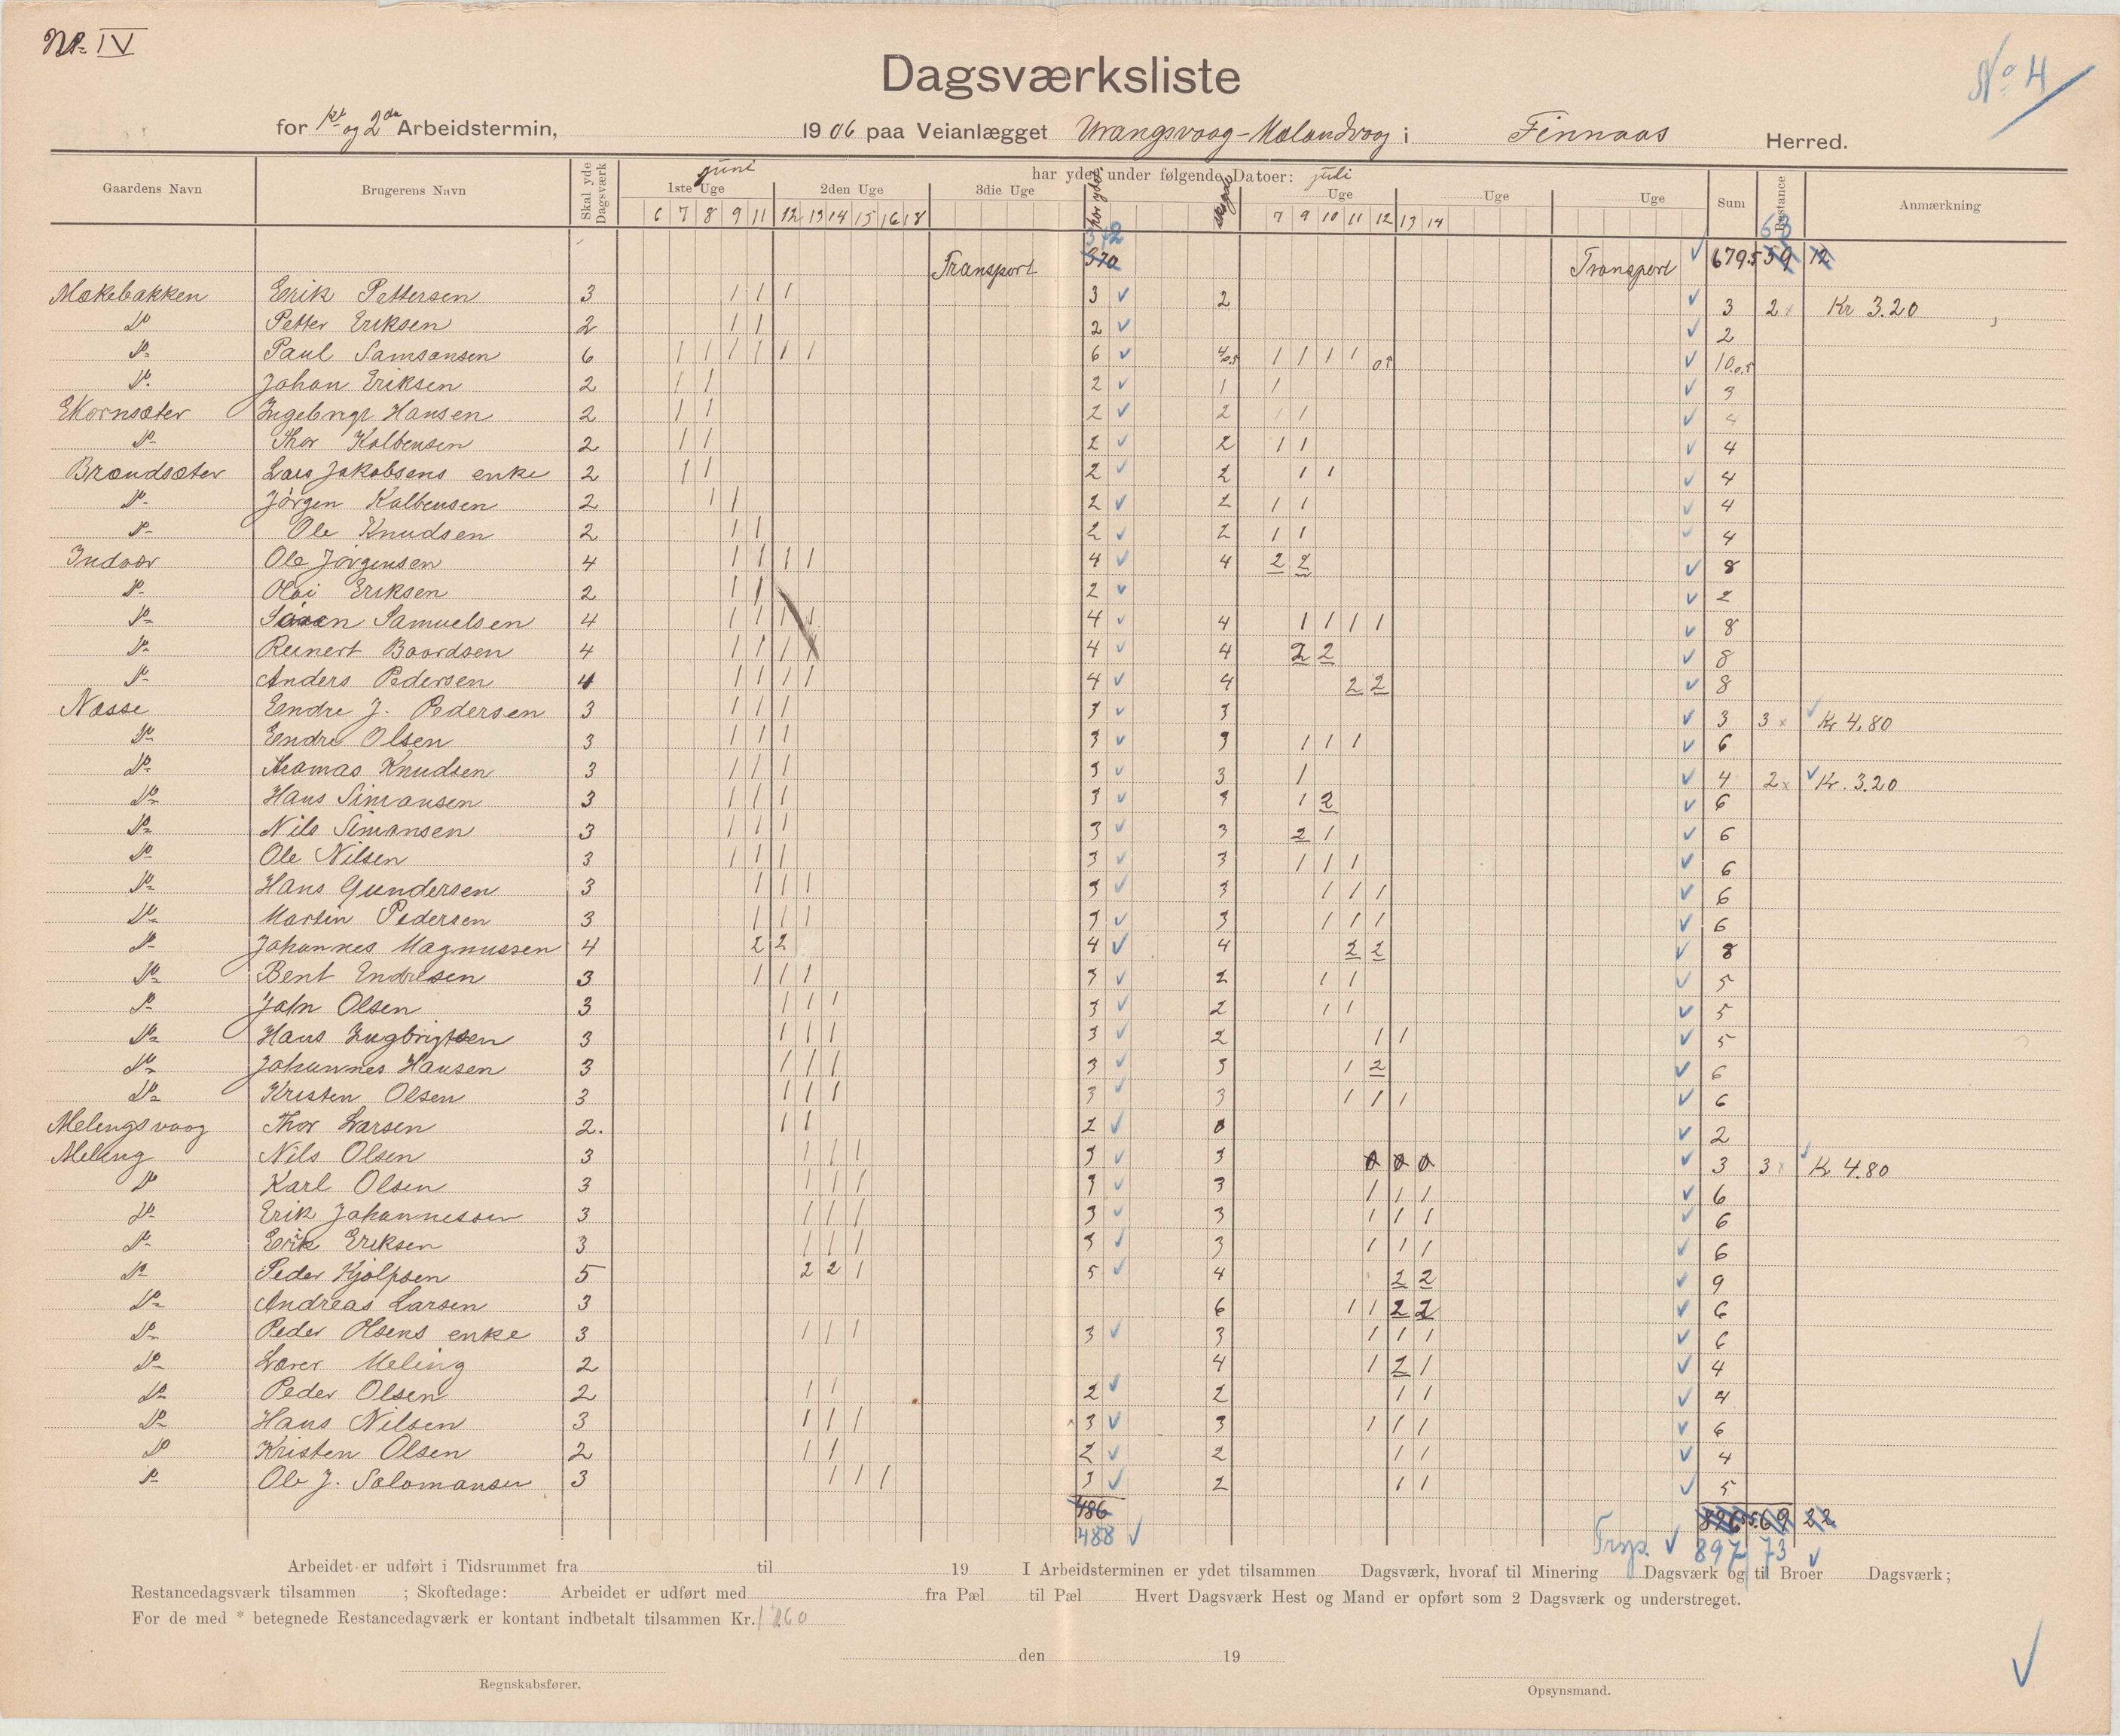 No. IV
No 4
Dagsværksliste
for 1ste og 2den Arbeidstermin, 1906 paa Veianlægget Urangsvaag-Mælandvaag i Finnaas Herred.
Gaardens Navn Brugerens Navn Skal yde Dagsværk har ydet under følgende Datoer: Sum Restance Anmærkning
juni juli
1ste Uge 2den Uge 3die Uge har ydet Uge Uge Uge
6 7 8 9 11 12 13 14 15 16 18 7 9 10 11 12 13 14
342 68
Transport 370 Transport 679.5 59 12
Mækebakken Erik Pettersen 3 1 1 1 3 2 3 2 x Kr 3.20
Do Petter Eriksen 2 1 1 2 2
Do Paul Samsonsen 6 1 1 1 1 1 1 6 4/0.5 1 1 1 1 0.5 10.0.5
Do Johan Eriksen 2 1 1 2 1 1 3
Ekornsæter Ingebrigt Hansen 2 1 1 2 2 1 1 4
Do Thor Kolbensen 2 1 1 2 2 1 1 4
Brandsæter Lars Jakobsens enke 2 1 1 2 2 1 1 4
Do Jørgen Kolbensen 2 1 1 2 2 1 1 4
Do Ole Knudsen 2 1 1 2 2 1 1 4
Indvær Ole Jørgensen 4 1 1 1 1 4 4 2 2 8
Do Eriksen 2 1 1 2 2
Do Søren Samuelsen 4 1 1 1 1 4 4 1 1 1 1 8
Do Reinert Baardsen 4 1 1 1 1 4 4 2 2 8
Do Anders Pedersen 4 1 1 1 1 4 4 2 2 8
Næsse Endre J. Pedersen 3 1 1 1 3 3 3 3 x Kr 4.80
Do Endre Olsen 3 1 1 1 3 3 1 1 1 6
Do Thomas Knudsen 3 1 1 1 3 3 1 4 2 x Kr. 3.20
Do Hans Simonsen 3 1 1 1 3 3 1 2 6
Do Nils Simonsen 3 1 1 1 3 3 2 1 6
Do Ole Nilsen 3 1 1 1 3 3 1 1 1 6
Do Hans Gundersen 3 1 1 1 3 3 1 1 1 6
Do Martin Pedersen 3 1 1 1 3 3 1 1 1 6
Do Johannes Magnussen 4 2 2 4 4 2 2 8
Do Bent Endresen 3 1 1 1 3 2 1 1 5
Do John Olsen 3 1 1 1 3 2 1 1 5
Do Hans Ingbrigtsen 3 1 1 1 3 2 1 1 5
Do Johannes Hansen 3 1 1 1 3 3 1 2 6
Do Kristen Olsen 3 1 1 1 3 3 1 1 1 6
Melingsvaag Thor Larsen 2. 1 1 2 0 2
Meling Nils Olsen 3 1 1 1 3 3 0 0 0 3 3 x Kr 4.80
Do Karl Olsen 3 1 1 1 3 3 1 1 1 6
Do Erik Johannessen 3 1 1 1 3 3 1 1 1 6
Do Erik Eriksen 3 1 1 1 3 3 1 1 1 6
Do Peder Kjølpsen 5 2 2 1 5 4 2 2 9
Do Andreas Larsen 3 6 1 1 2 2 6
Do Peder Olsens enke 3 1 1 1 3 3 1 1 1 6
Do Lærer Meling 2 4 1 2 1 4
Do Peder Olsen 2 1 1 2 2 1 1 4
Do Hans Nilsen 3 1 1 1 3 3 1 1 1 6
Do Kristen Olsen 2 1 1 2 2 1 1 4
Do Ole J. Salomonsen 3 1 1 1 3 2 1 1 5
486 896.5 69 22
488 Trsp. 897 73
Arbeidet er udført i Tidsrummet fra til 19 I Arbeidsterminen er ydet tilsammen Dagsværk, hvoraf til Minering Dagsværk og til Broer Dagsværk;
Restancedagsværk tilsammen ; Skoftedage: Arbeidet er udført med fra Pæl til Pæl Hvert Dagsværk Hest og Mand er opført som 2 Dagsværk og understreget.
For de med * betegnede Restancedagværk er kontant indbetalt tilsammen Kr. 1260
den 19
Regnskabsfører. Opsynsmand.